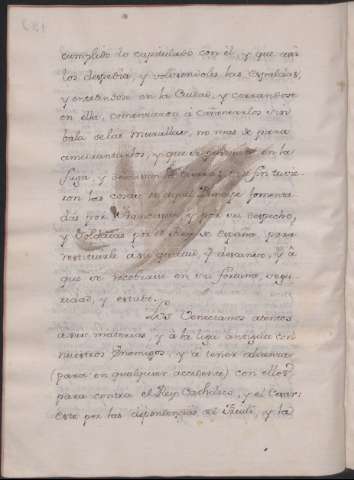 cumplido lo capitulado con él, y que así
los despedia, y volviendoles las espaldas,
y entrandose en la Ciudad, y cerrandose
en ella, comenzaron a cañonearlos sin
bala de las murallas, no mas de para
amedrentarlos, y que se pusiesen en la
fuga, y
fin tuvie
ron las cosas de aquel Principe fomenta
das por Francia, y por su despecho,
y por el Rey de España, para
restituirle a su quietud, y descanso, y a
que se recobrase en su fortuna, segu
ridad, y estado.
Los Venecianos atentos
a sus materias, y a la liga antigua con
nuestros Enemigos, y a tener
(para en qualquier accidente) con ellos
para contra el Rey Catholico, y el Cesar:
Este por las dependencias de Friuli, y la